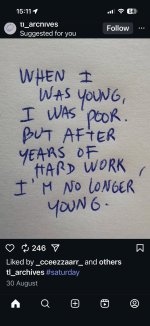 15:11
tl_archives
Suggested for you
Follow
WHEN I
WAS YOUNG,
I WAS POOR.
BUT AFTER
YEARS OF
HARD WORK,
I'M NO LONGER
YOUNG.
246
Liked by _cceezzaarr_ and others
tl_archives #saturday
30 August